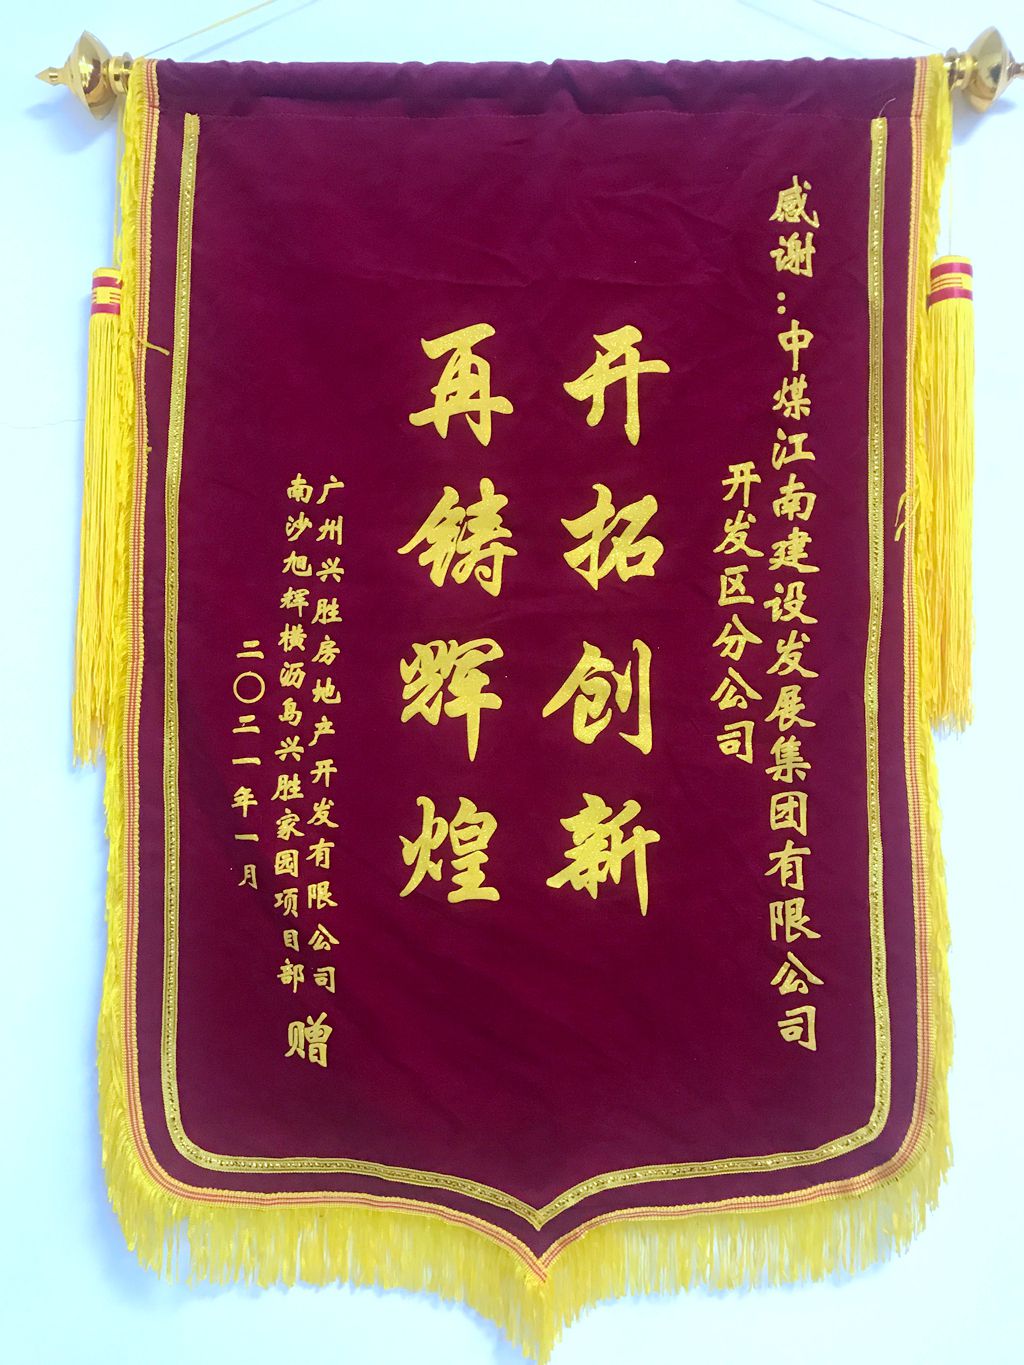 感谢：中煤江南建设发展集团有限公司
开发区分公司
开拓创新
再铸辉煌
广州兴胜房地产开发有限公司
南沙旭辉横沥岛兴胜家园项目部 赠
二〇二一年一月